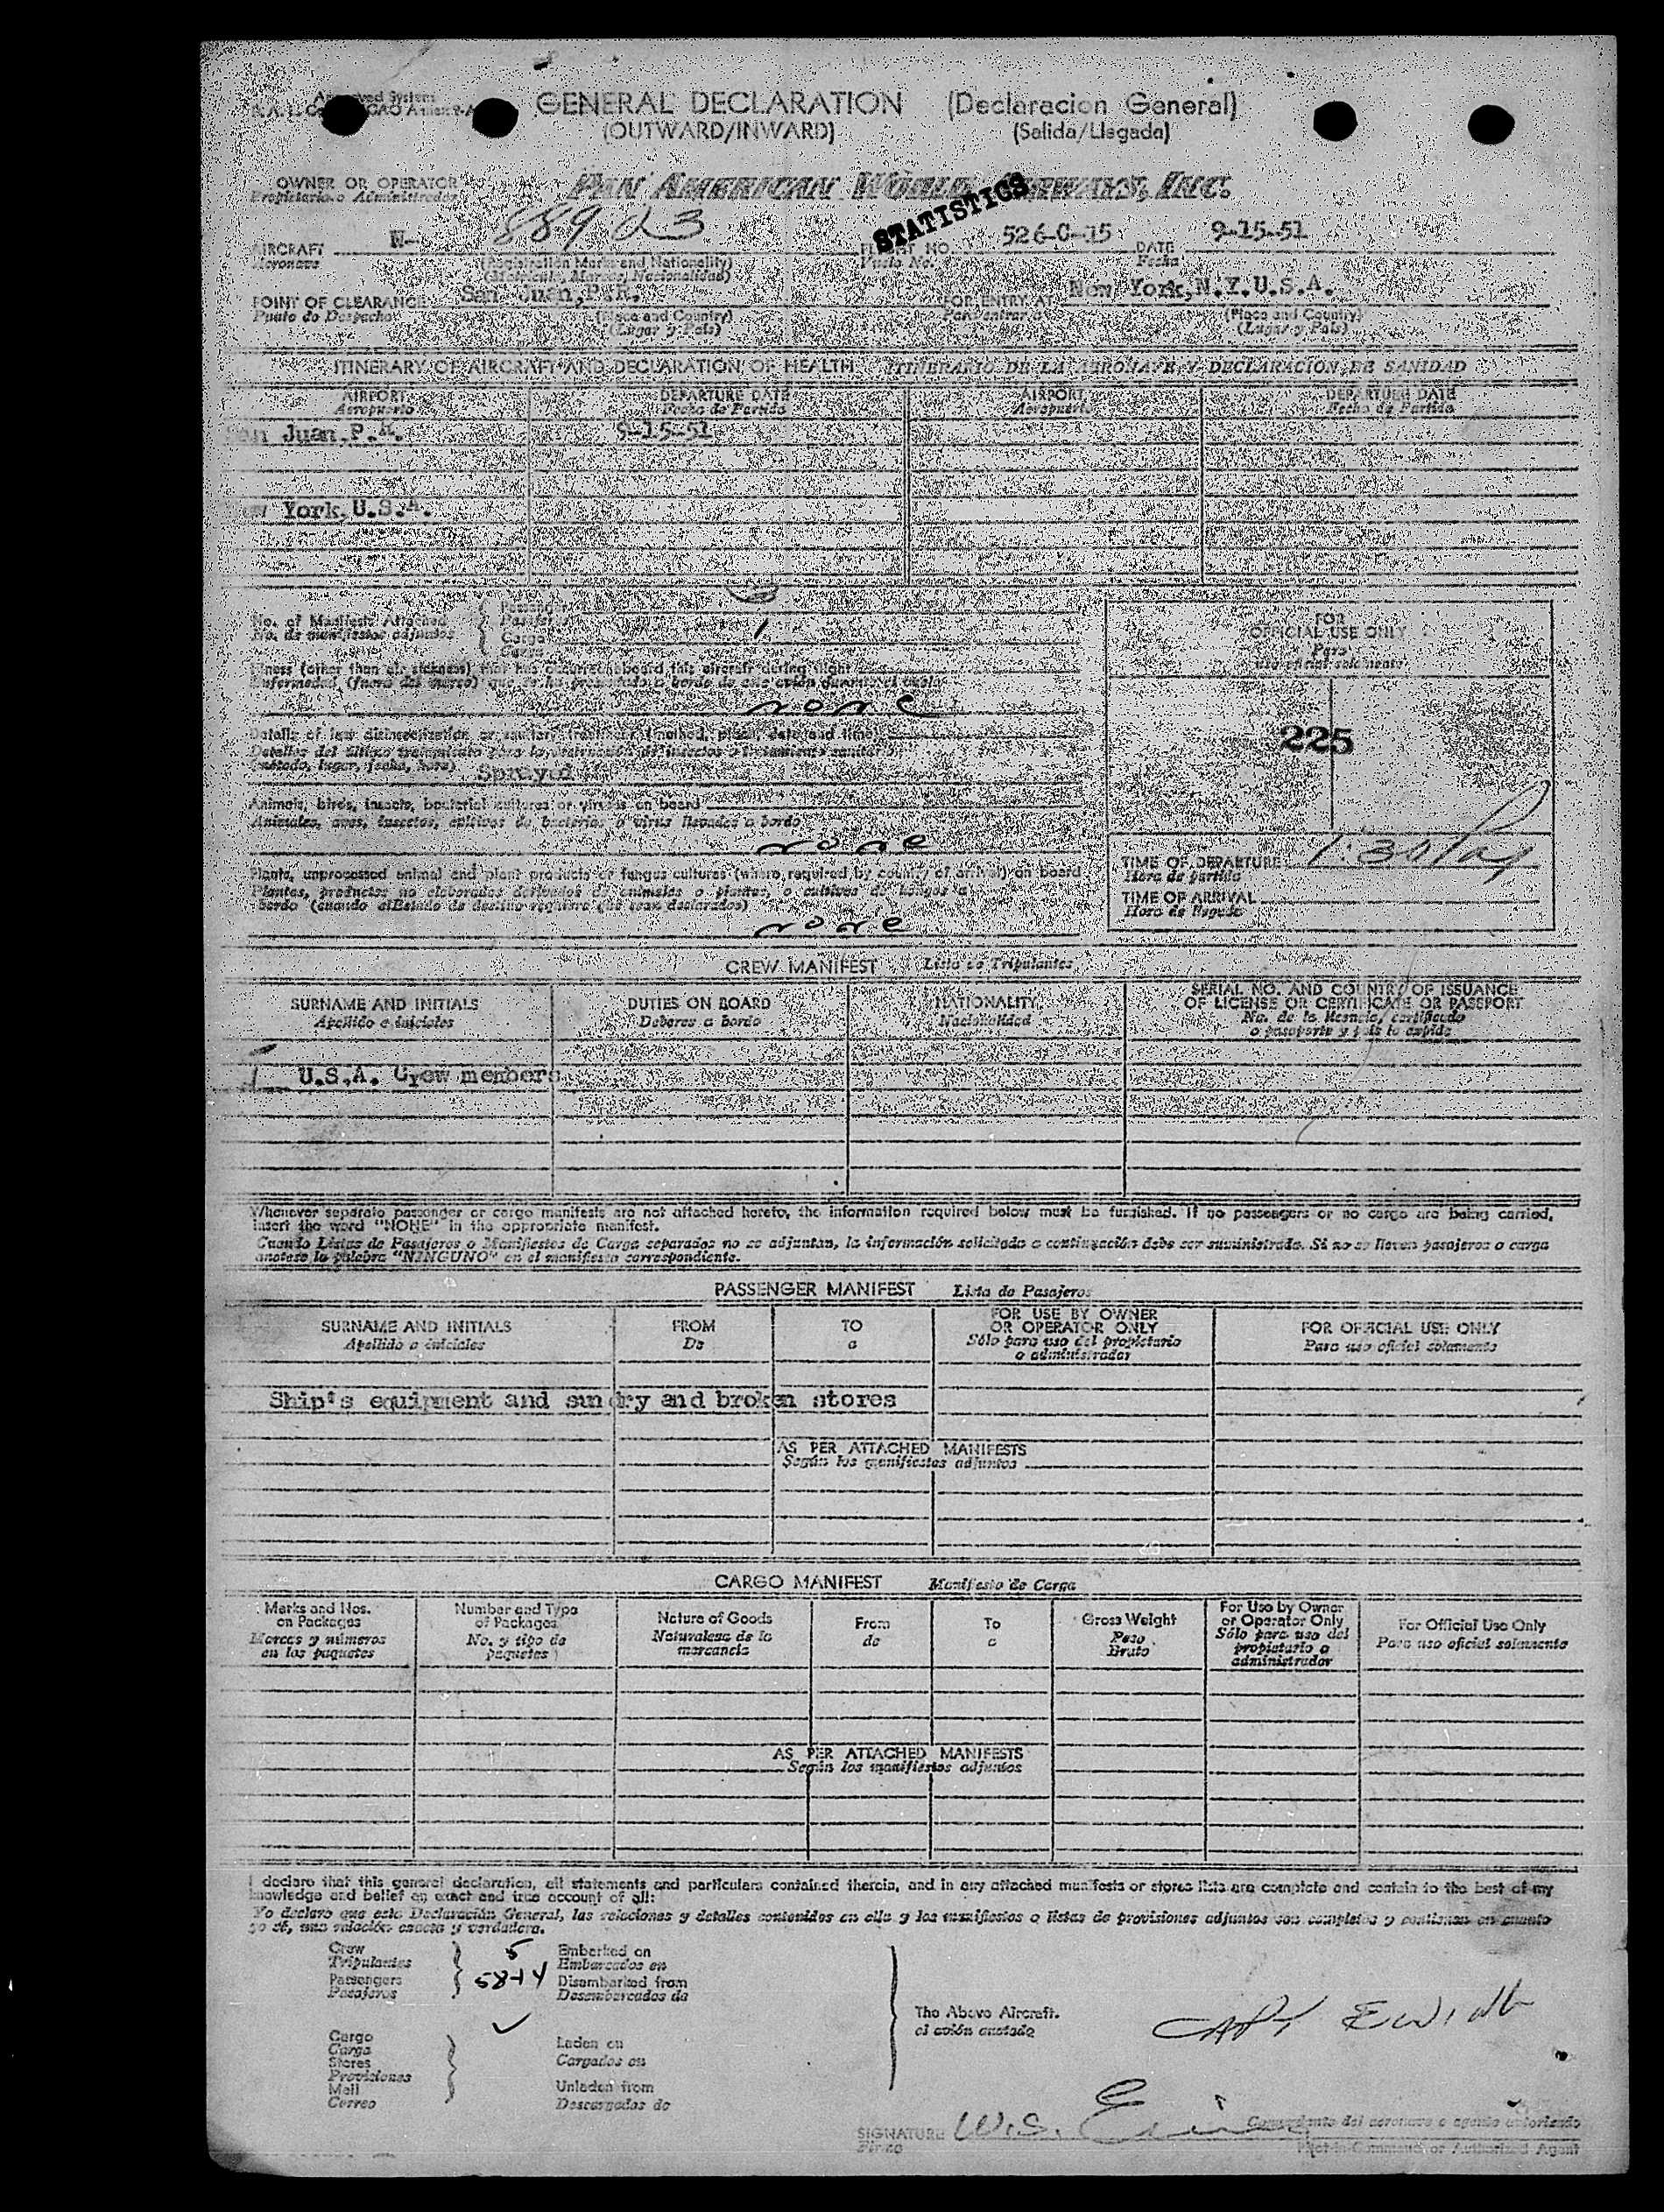 GENERAL DECLARATION (Declaracion General)
(OUTWARD/INWARD) (Salida/Llegada)
OWNER OR OPERATOR PAN AMERICAN WORLD AIRWAYS, INC.
Propietario o Administrador
STATISTICS
AIRCRAFT N- 88923 FLIGHT NO. 526-C-15 DATE 9-15-51
Aeronave (Registration Marks and Nationality) Vuelo No. Fecha
(Matricula, Marca y Nacionalidad)
POINT OF CLEARANCE San Juan, P.R. FOR ENTRY AT New York, N.Y. U.S.A.
Punto de Despacho (Place and Country) Para entrar a (Place and Country)
(Lugar y País) (Lugar y País)
ITINERARY OF AIRCRAFT AND DECLARATION OF HEALTH ITINERARIO DE LA AERONAVE Y DECLARACION DE SANIDAD
AIRPORT DEPARTURE DATE AIRPORT DEPARTURE DATE
Aeropuerto Fecha de Partida Aeropuerto Fecha de Partida
San Juan, P.R. 9-15-51
New York, U.S.A.
No. of Manifests Attached Passenger
No. de manifiestos adjuntos Cargo 1
FOR
OFFICIAL USE ONLY
Para
uso oficial solamente
Illness (other than air sickness) that has occurred aboard this aircraft during flight
Enfermedad (fuera del mareo) que se ha presentado a bordo de este avión durante el vuelo
none
225
Details of last disinsectization or sanitary treatment (method, place, date and time)
(método, lugar, fecha, hora) Sprayed
Animals, birds, insects, bacterial cultures or viruses on board
Animales, aves, insectos, cultivos de bacterias o virus llevados a bordo
none
TIME OF DEPARTURE 1:30
Hora de partida
TIME OF ARRIVAL
Hora de llegada
Plants, unprocessed animal and plant products or fungus cultures (where required by country of arrival) on board
Plantas, productos no elaborados derivados de animales o plantas, o cultivos de hongos a
bordo (cuando el Estado de destino requiera que sean declarados)
none
CREW MANIFEST Lista de Tripulantes
SURNAME AND INITIALS DUTIES ON BOARD NATIONALITY SERIAL NO. AND COUNTRY OF ISSUANCE
OF LICENSE OR CERTIFICATE OR PASSPORT
Apellido e iniciales Deberes a bordo Nacionalidad No. de la licencia, certificado
o pasaporte y país lo expide
U.S.A. Crew members
Whenever separate passenger or cargo manifests are not attached hereto, the information required below must be furnished. If no passengers or no cargo are being carried,
insert the word "NONE" in the appropriate manifest.
Cuando Listas de Pasajeros o Manifiestos de Carga separados no se adjuntan, la información solicitada a continuación debe ser suministrada. Si no se llevan pasajeros o carga
anotese la palabra "NINGUNO" en el manifiesto correspondiente.
PASSENGER MANIFEST Lista de Pasajeros
SURNAME AND INITIALS FROM TO FOR USE BY OWNER
OR OPERATOR ONLY FOR OFFICIAL USE ONLY
Apellido e iniciales De a Sólo para uso del propietario
o administrador Para uso oficial solamente
Ship's equipment and sundry and broken stores
AS PER ATTACHED MANIFESTS
Según los manifiestos adjuntos
CARGO MANIFEST Manifiesto de Carga
Marks and Nos.
on Packages
Marcas y números
en los paquetes
Number and Type
of Packages
No. y tipo de
paquetes
Nature of Goods
Naturaleza de la
mercancía
From
de
To
a
Gross Weight
Peso
Bruto
For Use by Owner
or Operator Only
Sólo para uso del
propietario o
administrador
For Official Use Only
Para uso oficial solamente
AS PER ATTACHED MANIFESTS
Según los manifiestos adjuntos
I declare that this general declaration, all statements and particulars contained therein, and in any attached manifests or stores lists are complete and contain to the best of my
knowledge and belief an exact and true account of all:
Yo declaro que esta Declaración General, las relaciones y detalles contenidos en ella y los manifiestos o listas de provisiones adjuntos son completos y contienen en cuanto
yo sé, una relación exacta y verdadera.
Crew 5 Embarked on
Tripulantes Embarcados en
Passengers 58+4 Disembarked from
Pasajeros Desembarcados de
The Above Aircraft.
el avión anotado
Cargo
Carga Laden on
Stores Cargados en
Provisiones
Mail Unladen from
Correo Descargados de
SIGNATURE W.S.
Firma
Comandante del aeronave o agente autorizado
Pilot-in-Command or Authorized Agent